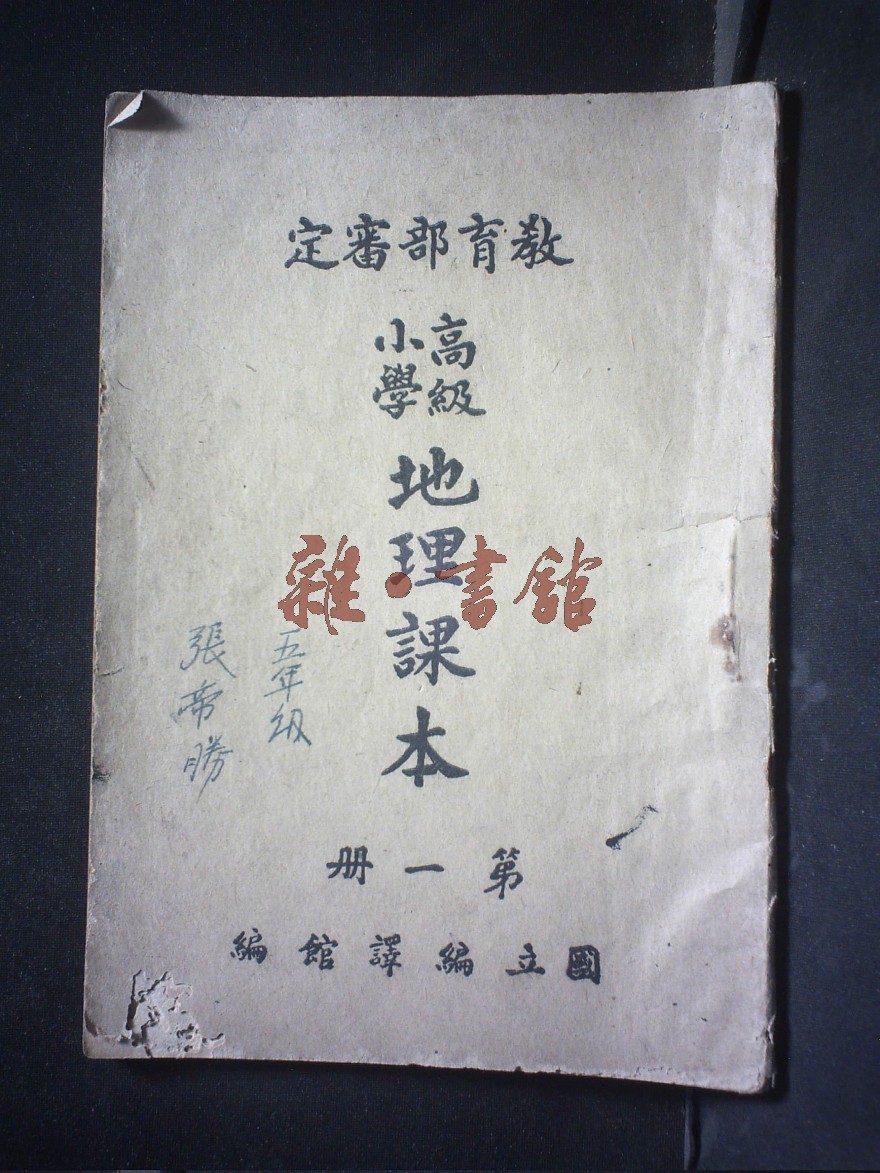 教育部審定
高級小學
地理課本
第一冊
國立編譯館編
五年級
張帝勝
雜·書館